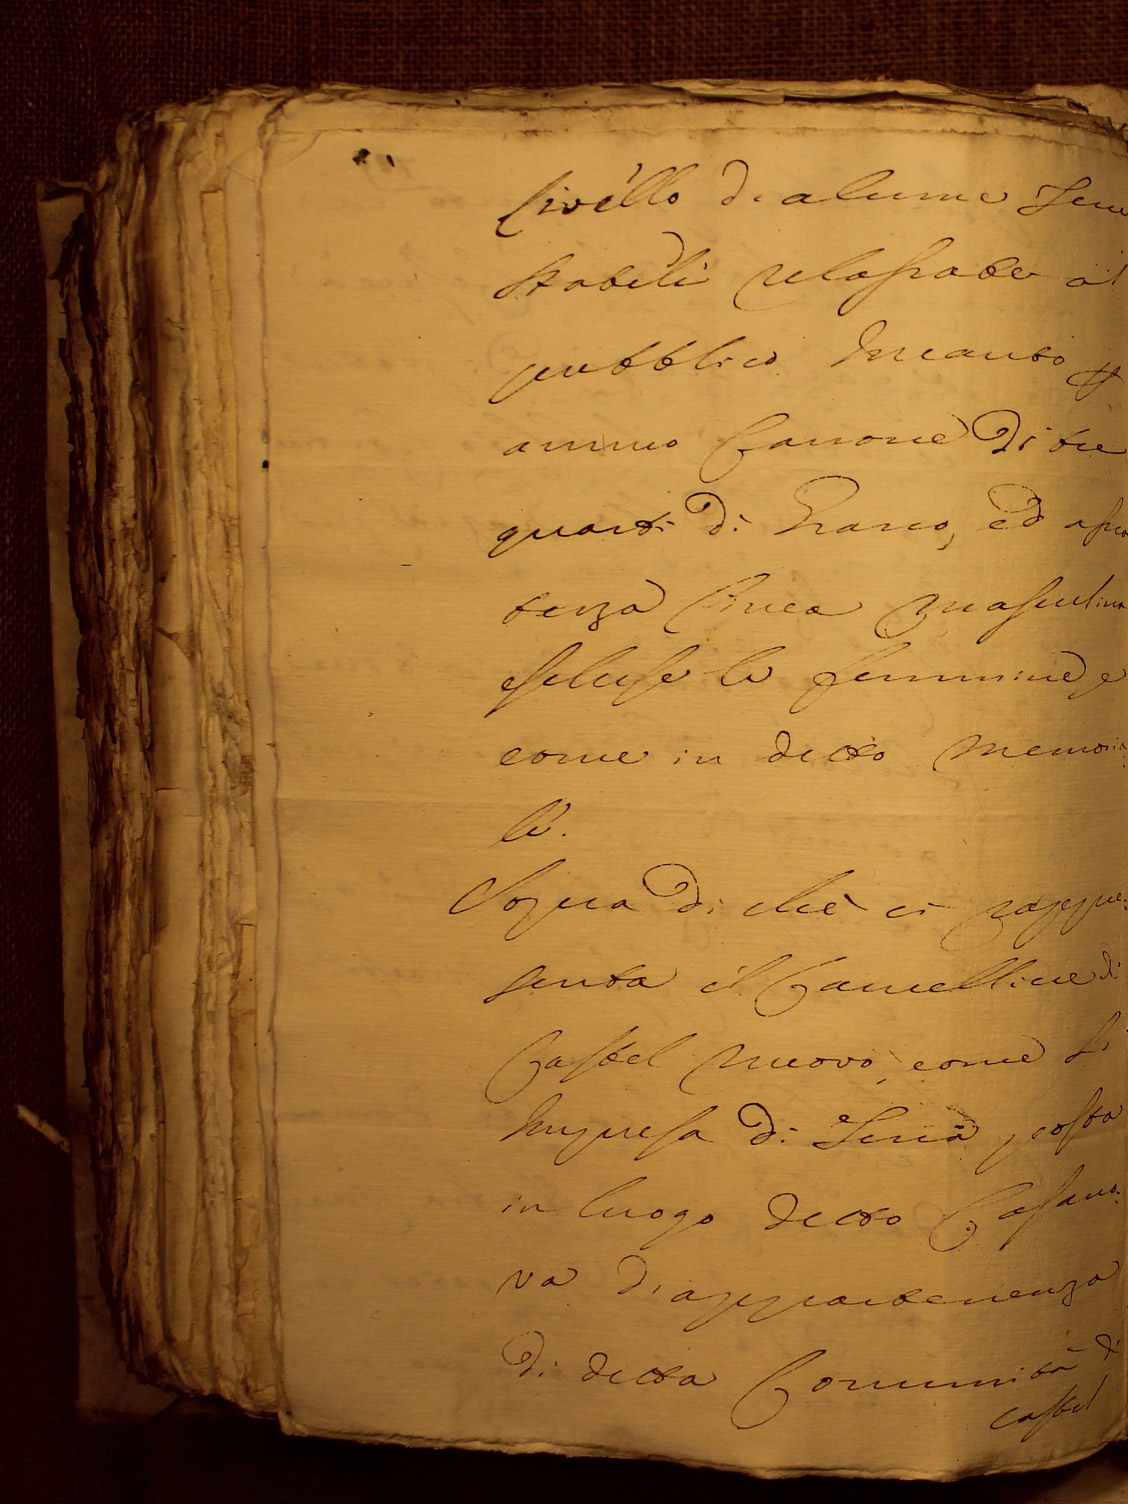 livello di alcune Terre
stabili relassate al
pubblico Incanto p
annuo Canone di tre
quarti di Grano, ed a
terza linea masculina
escluse le femmine, e
come in detto memoria:
le.
Sopra di che ci rappre:
senta il Cancelliere di
Castel nuovo, come di
Impresa di Terra, posta
in luogo detto Casano:
va di appartenenza
di detta Comunità di
Castel